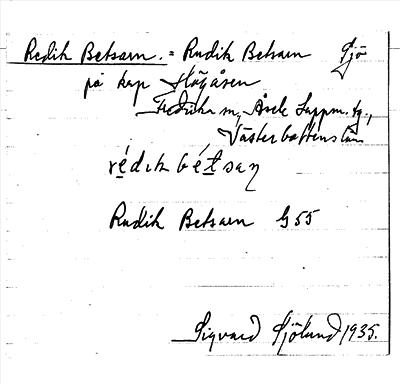 Redik Betsarn. = Rudik Betsarn Sjö
på kap Högåsen
Fredrika sn, Åsele Lappm. tg.,
Västerbottens län
védik bétsaŋ
Rudik Betsarn G55
Sigvard Sjölund 1935.